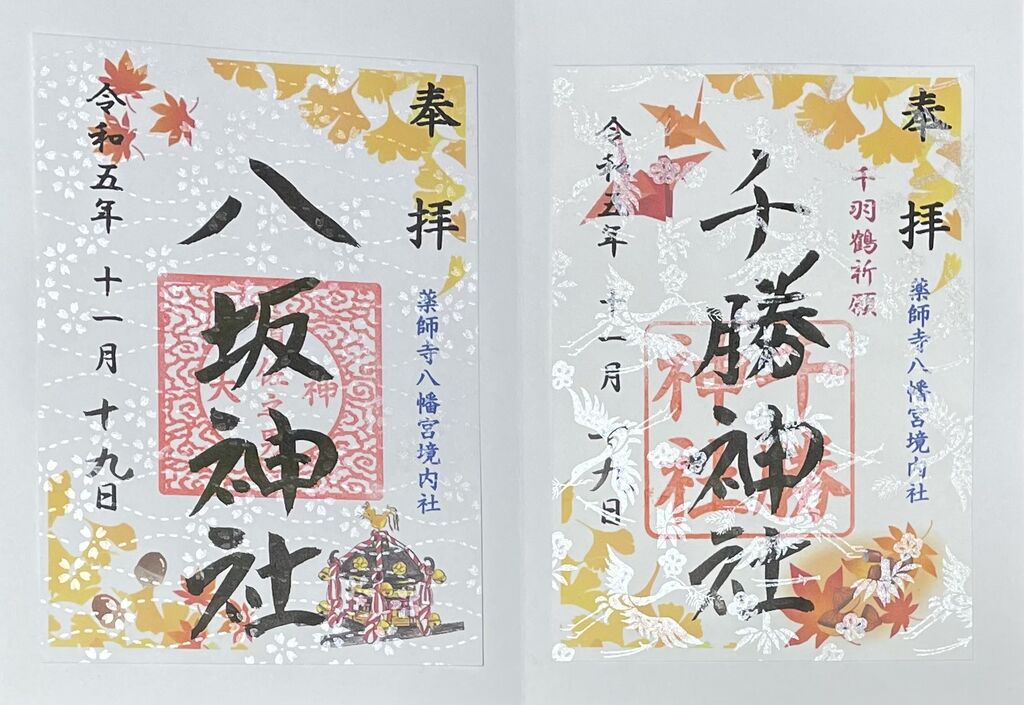 奉拝
薬師寺八幡宮境内社
八坂神社
令和五年 十一月 十九日
奉拝
薬師寺八幡宮境内社
千羽鶴祈願
千勝神社
千勝神社
令和五年 十一月 十九日